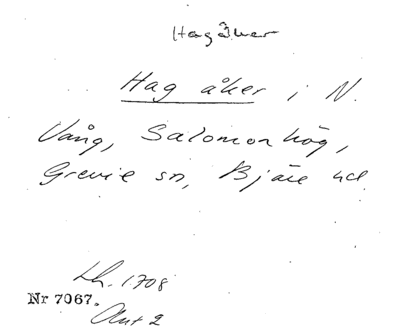 Hagåker
Hag åker i N.
Vång, Salomonhög,
Grevie sn, Bjäre hd
Lh. 1708
Nr 7067.
Akt 2